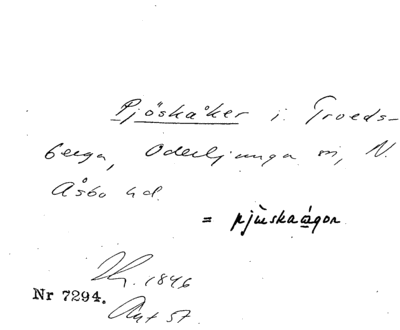 Pjöskåker i Troeds-
berga, Oderljunga sn, N.
Åsbo hd.
= pjùskaågor
1846
Nr 7294.
Akt 57.